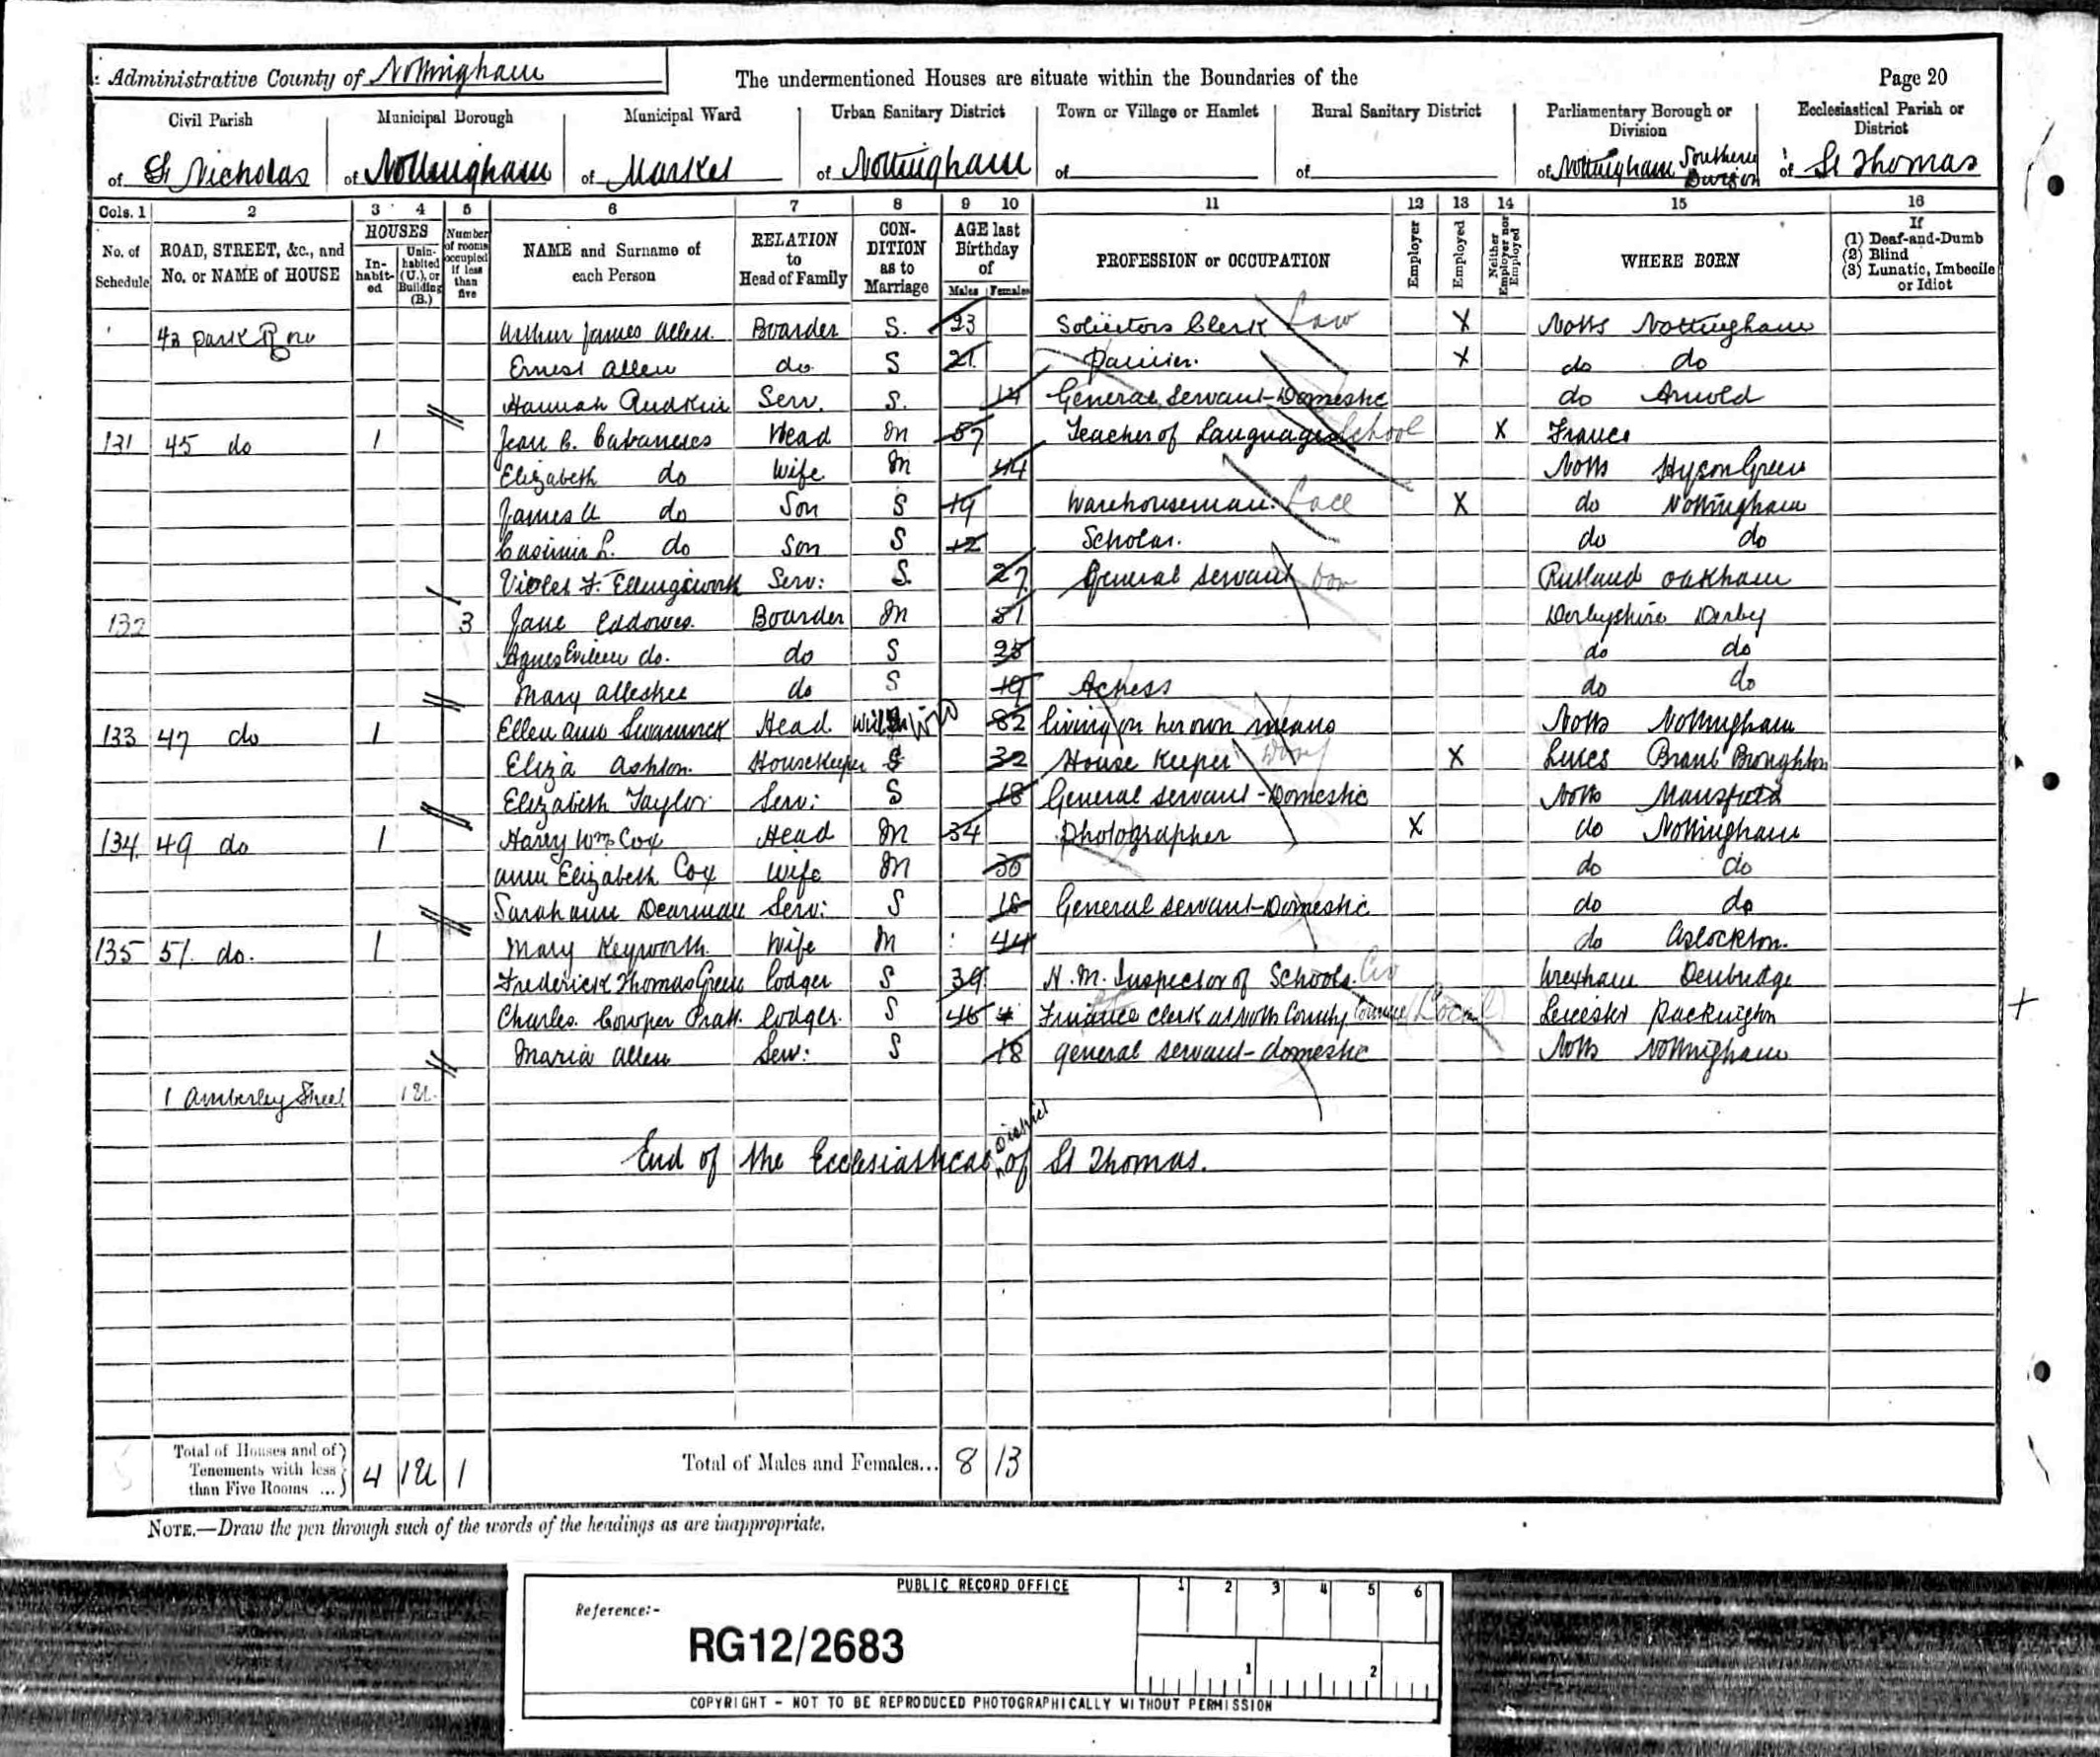 Administrative County of Nottingham
The undermentioned Houses are situate within the Boundaries of the
Page 20
Civil Parish of St Nicholas
Municipal Borough of Nottingham
Municipal Ward of Market
Urban Sanitary District of Nottingham
Town or Village or Hamlet of
Rural Sanitary District of
Parliamentary Borough or Division of Nottingham Southern Division
Ecclesiastical Parish or District of St Thomas
Cols. 1 2 3 4 5 6 7 8 9 10 11 12 13 14 15 16
No. of Schedule
ROAD, STREET, &c., and No. or NAME of HOUSE
HOUSES
In-habit-ed
Unin-habited (U.), or Building (B.)
Number of rooms occupied if less than five
NAME and Surname of each Person
RELATION to Head of Family
CON-DITION as to Marriage
AGE last Birthday of
Males Females
PROFESSION or OCCUPATION
Employer
Employed
Neither Employer nor Employed
WHERE BORN
If
(1) Deaf-and-Dumb
(2) Blind
(3) Lunatic, Imbecile or Idiot
43 Park Row Arthur James Allen Boarder S. 23 Solicitors Clerk Law X Notts Nottingham
Ernest Allen do S 21 X do do
Hannah Rudkin Serv. S. 14 General Servant-Domestic do Arnold
131 45 do 1 Jean Head M 57 Teacher of Languages School X France
Elizabeth do Wife M 44 Notts Hyson Green
James A do Son S 19 Warehouseman Lace X do Nottingham
Casimir L. do Son S 12 Scholar. do do
Violet F. Ellingsworth Serv: S. 27 General Servant Dom Rutland Oakham
132 3 Jane Eddowes Boarder M 51 Derbyshire Derby
Agnes do. do S do do
Mary Allestree do S 19 Actress do do
133 47 do 1 Ellen Ann Swanwick Head Wid 82 living on her own means Notts Nottingham
Eliza Ashton. Housekeeper S 32 House Keeper Dom X Lincs Brant Broughton
Elizabeth Taylor Serv: S 18 General Servant-Domestic Notts Mansfield
134 49 do 1 Harry Wm Cox Head M 34 Photographer X do Nottingham
Ann Elizabeth Cox Wife M 30 do do
Sarah Ann Dearman Serv: S General Servant-Domestic do do
135 51 do. 1 Mary Keyworth Wife M 44 do Aslockton.
Frederick Thomas Green lodger S 39 H.M. Inspector of Schools. Civ Wrexham
Charles Cowper Pratt. lodger. S Finance Clerk at Notts County Council Local Leicester Packington
Maria Allen Serv: S 18 general servant-domestic Notts Nottingham
1 Amberley Street 1U.
End of the Ecclesiastical District of St Thomas.
Total of Houses and of Tenements with less than Five Rooms ... 4 1U 1
Total of Males and Females... 8 13
NOTE.—Draw the pen through such of the words of the headings as are inappropriate.
PUBLIC RECORD OFFICE
1 2 3 4 5 6
Reference:-
RG12/2683
1 2
COPYRIGHT - NOT TO BE REPRODUCED PHOTOGRAPHICALLY WITHOUT PERMISSION